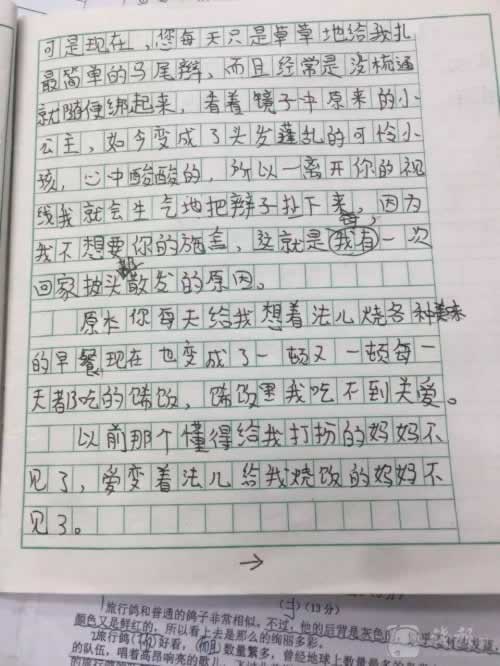 可是现在,您每天只是草草地给我扎
最简单的马尾辫,而且经常是没梳通
就随便绑起来,看着镜子中原来的小
公主,如今变成了头发蓬乱的可怜小
孩,心中酸酸的,所以一离开你的视
线我就会生气地把辫子扯下来,因为
我不想要你的施舍,这就是我有一次
回家披头散发的原因。
原本你每天给我想着法儿烧各种美味
的早餐现在也变成了一顿又一顿每一
天都吃的馊饭,馊饭里我吃不到关爱。
以前那个懂得给我打扮的妈妈不
见了,爱变着法儿给我烧饭的妈妈不
见了。
→
(13分)
旅行鸽和普通的鸽子非常相似。不过,他的后背是灰色
颜色又是鲜红的,所以看上去是那么的绚丽多彩。
旅行鸽 好看, 数量繁多,曾经地球上数量
的队伍,唱着高昂响亮的歌儿,